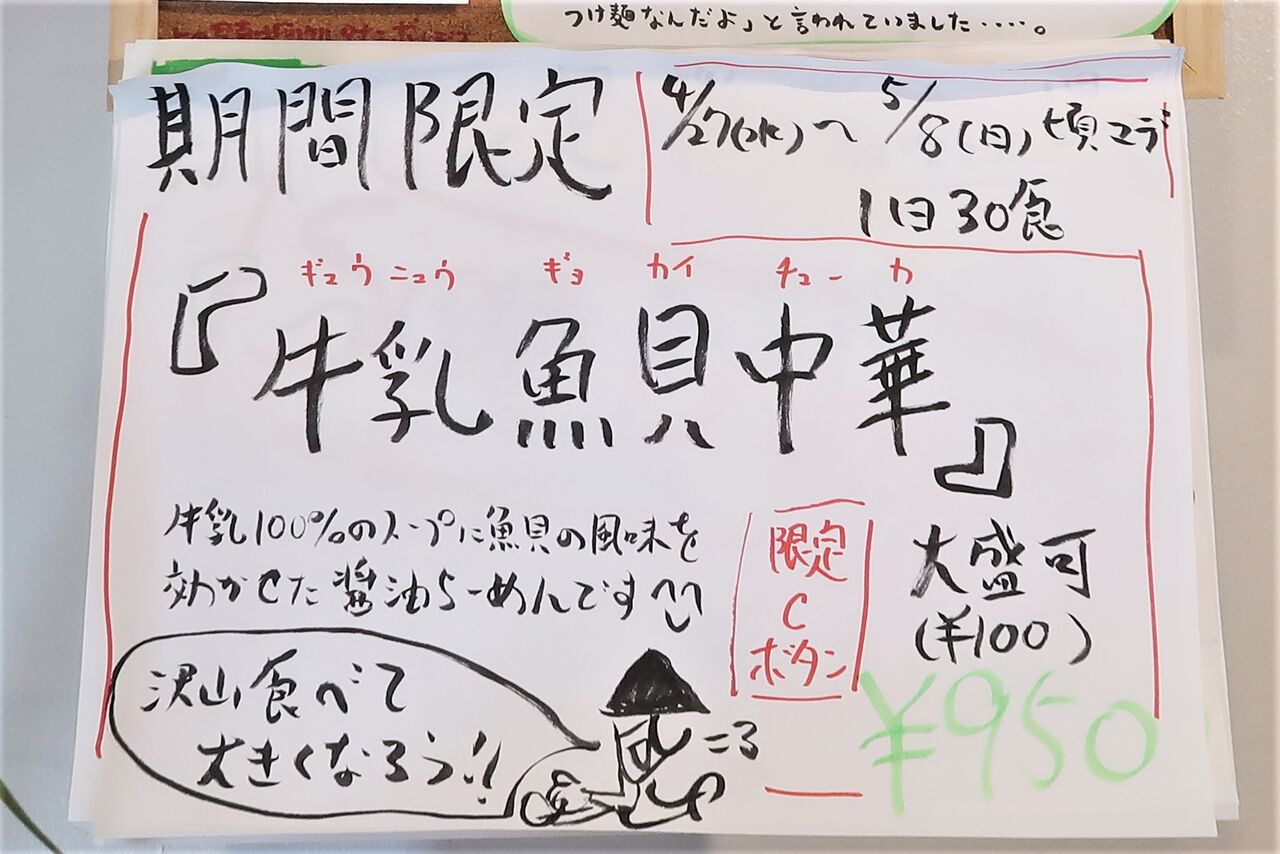 つけ麺なんだよ」と言われていました・・・・。
期間限定
4/27(水)〜5/8(日)頃マデ
1日30食
ギュウニュウ ギョ カイ チューカ
『牛乳魚貝中華』
牛乳100%のスープに魚貝の風味を
効かせた醤油らーめんです
限定
C
ボタン
大盛可
(¥100)
¥950
沢山食べて
大きくなろう!!